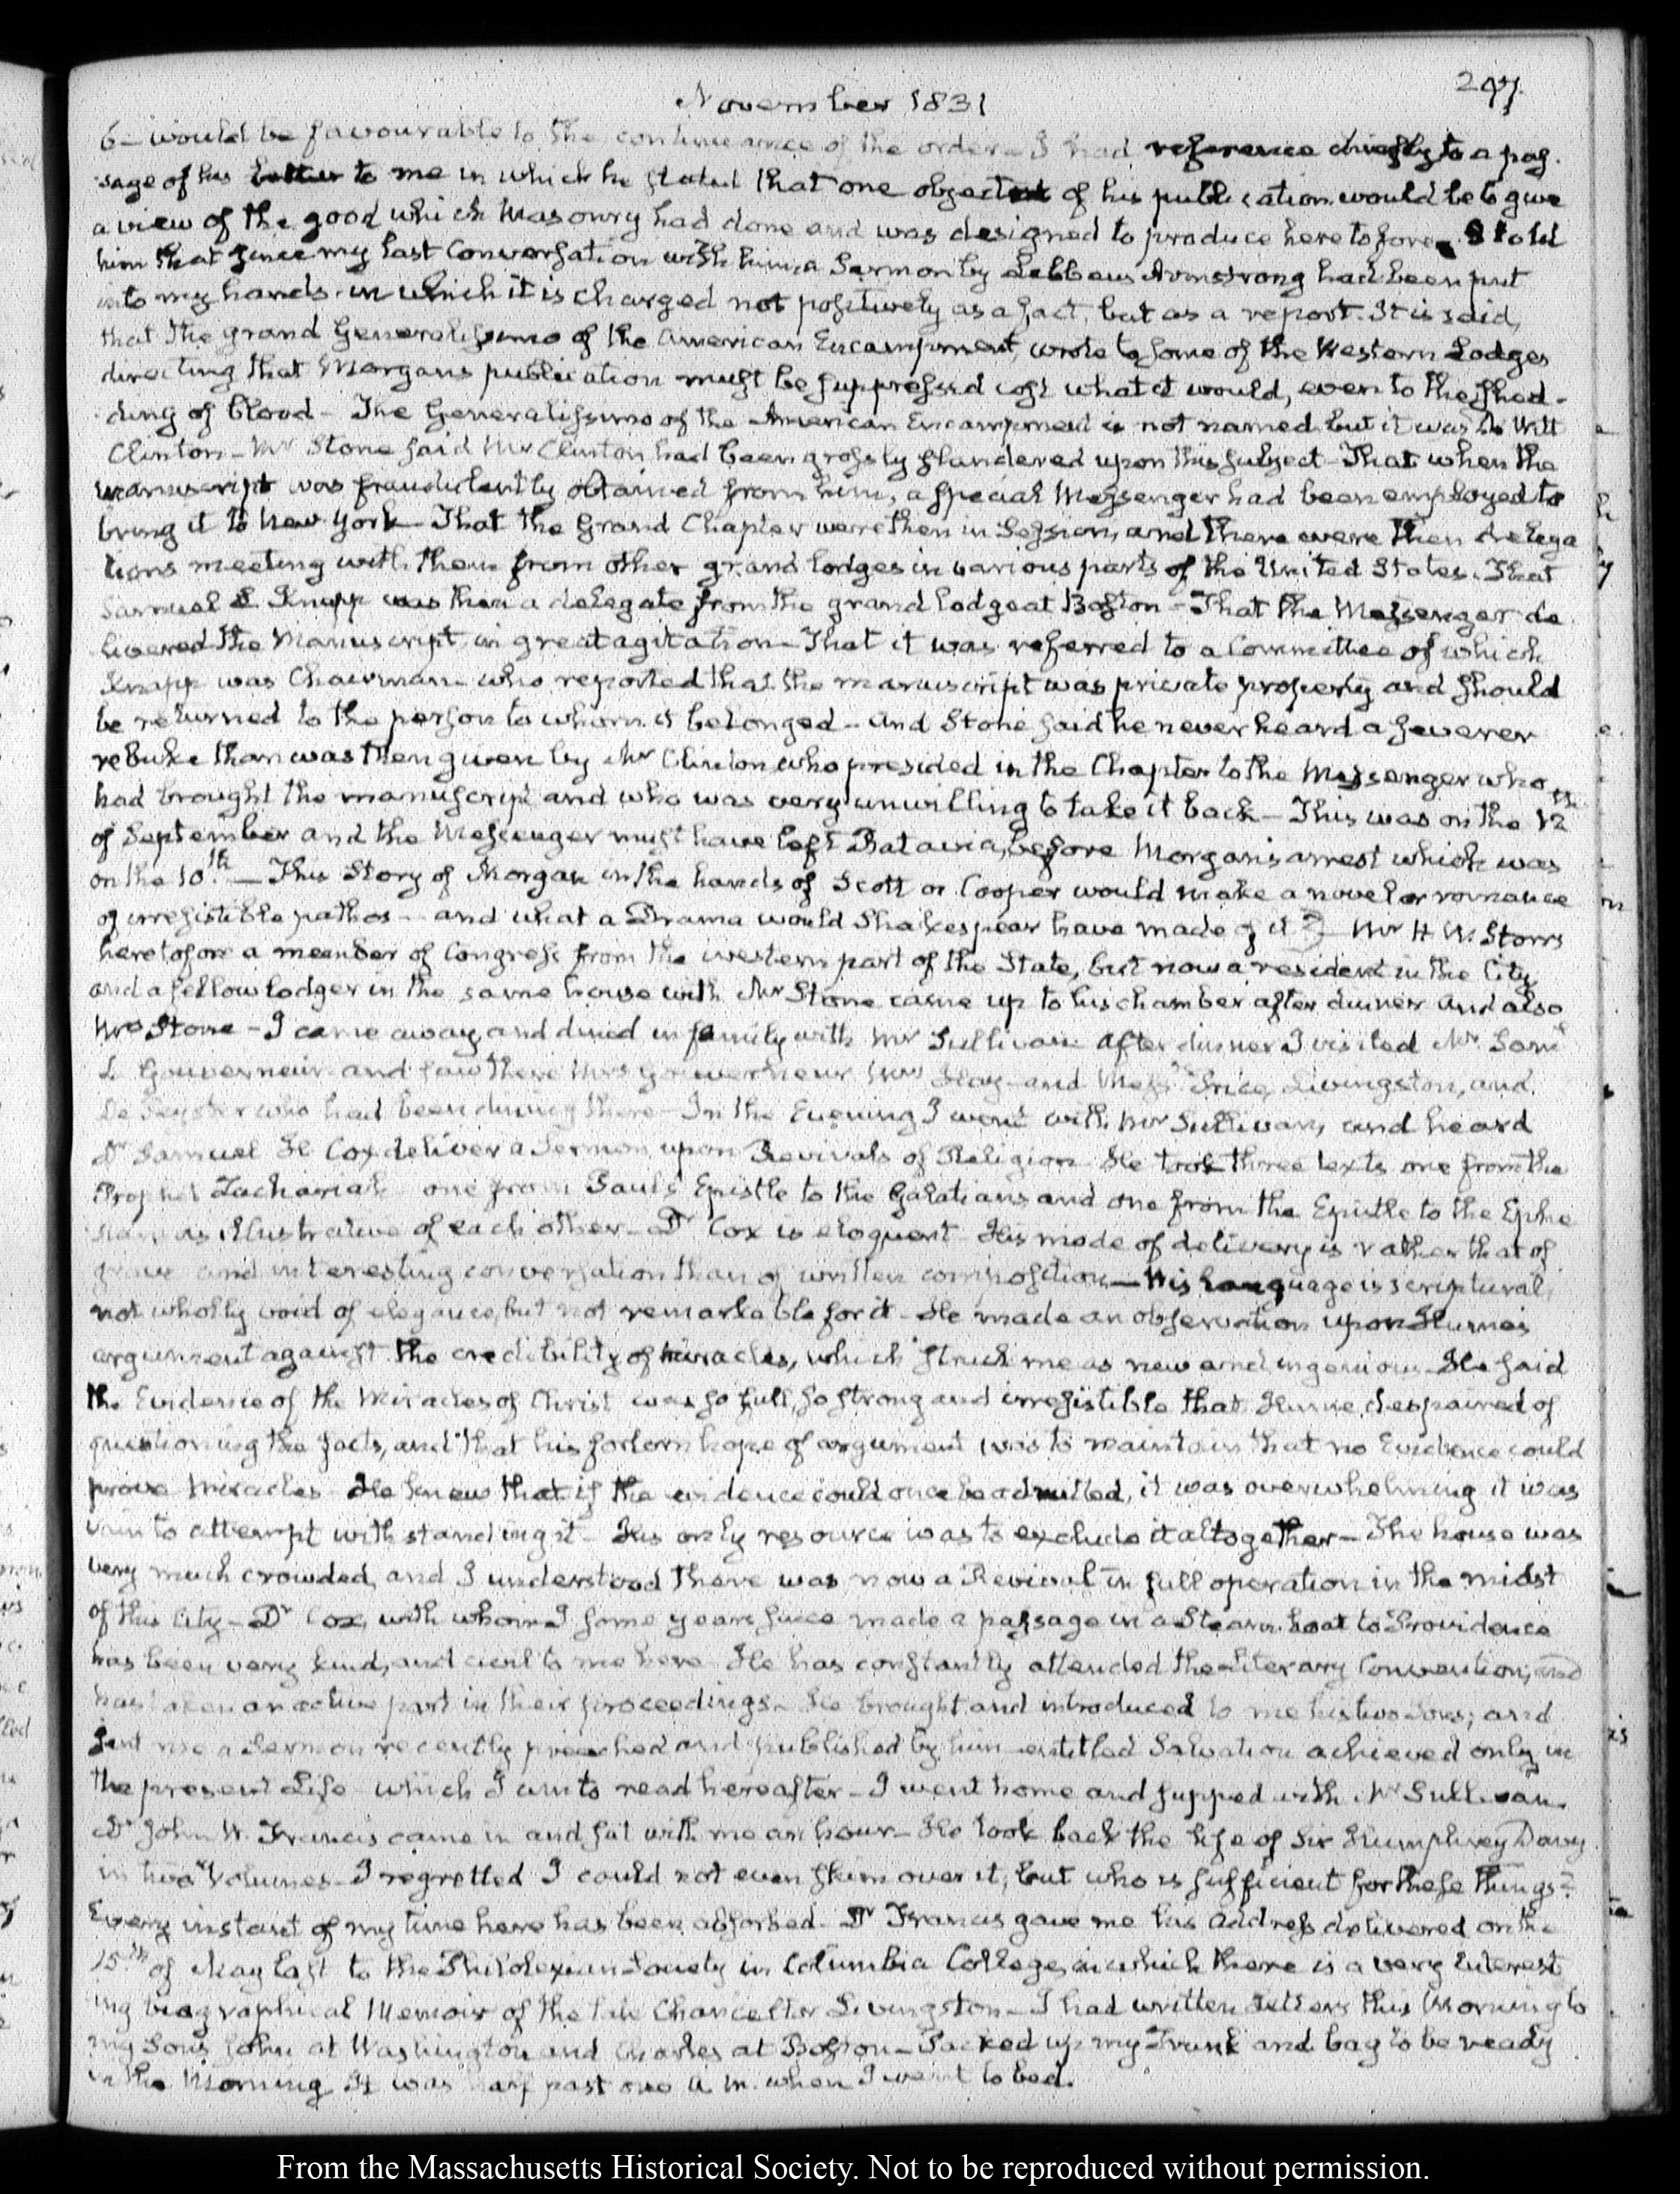 November 1831
247.
6— would be favourable to the continuance of the order— I had reference chiefly to a pas-
sage of his letter to me in which he stated that one object of his publication would be to give
a view of the good which Masonry had done and was designed to produce heretofore. I told
him that since my last Conversation with him a Sermon by Lebbeus Armstrong had been put
into my hands in which it is charged not positively as a fact, but as a report. It is said,
that the grand Generalissimo of the American Encampment, wrote to some of the Western Lodges
directing that Morgan's publication must be suppressed cost what it would, even to the shed-
ding of blood— The Generalissimo of the American Encampment is not named but it was De Witt
Clinton— Mr Stone said Mr Clinton had been grossly slandered upon this subject— That when the
manuscript was fraudulently obtained from him, a special Messenger had been employed to
bring it to New York— That the Grand Chapter were then in Session, and there were then delega
tions meeting with them from other grand lodges in various parts of the United States. That
Samuel L. Knapp was then a delegate from the grand lodge at Boston— That the Messenger de
livered the Manuscript in great agitation— That it was referred to a Committee of which
Knapp was Chairman— who reported that the manuscript was private property and should
be returned to the person to whom it belonged— and Stone said he never heard a severer
rebuke than was then given by Mr Clinton who presided in the Chapter to the Messenger who
had brought the manuscript and who was very unwilling to take it back— This was on the 12th
of September and the Messenger must have left Batavia, before Morgan's arrest which was
on the 10th.— This Story of Morgan in the hands of Scott or Cooper would make a novel or romance
of irresistible pathos— and what a Drama would Shakespear have made of it? Mr H. R. Storrs
heretofore a member of Congress from the western part of the State, but now a resident in the City,
and a fellow lodger in the same house with Mr Stone came up to his chamber after dinner and also
Mrs Stone— I came away, and dined in family with Mr Sullivan. After dinner I visited Mr Saml
L Gouverneur and saw there Mrs Gouverneur, Mrs Hay and Messrs Price, Livingston, and
De Peyster who had been dining there— In the Evening I went with Mr Sullivan, and heard
Dr Samuel H Cox deliver a Sermon upon Revivals of Religion— He took three texts one from the
Prophet Zachariah one from Paul's Epistle to the Galatians and one from the Epistle to the Ephe
sians as illustrative of each other— Dr Cox is eloquent— His mode of delivery is rather that of
grave and interesting conversation than of written composition— His language is scriptural,
not wholly void of elegance, but not remarkable for it— He made an observation upon Hume's
argument against the credibility of miracles, which struck me as new and ingenious— He said
the Evidence of the Miracles of Christ was so full, so strong and irresistible that Hume despaired of
questioning the facts, and that his forlorn hope of argument was to maintain that no Evidence could
prove Miracles— He knew that if the evidence could once be admitted, it was overwhelming it was
vain to attempt withstanding it— His only resource was to exclude it altogether— The house was
very much crowded, and I understood there was now a Revival in full operation in the midst
of this City— Dr Cox, with whom I some years since made a passage in a Steam-boat to Providence
has been very kind, and civil to me here— He has constantly attended the Literary Convention, and
has taken an active part in their proceedings— He brought and introduced to me his two Sons; and
sent me a Sermon recently preached and published by him entitled Salvation achieved only in
the present Life— which I am to read hereafter— I went home and supped with Mr Sullivan.
Dr John W. Francis came in and sat with me an hour— He took back the life of Sir Humphrey Davy
in two Volumes— I regretted I could not even skim over it; but who is sufficient for these things?
Every instant of my time here has been absorbed— Dr Francis gave me his Address delivered on the
15th of May last to the Philolexian Society in Columbia College, in which there is a very interest
ing biographical Memoir of the late Chancellor Livingston— I had written Letters this Morning to
my Sons John at Washington and Charles at Boston— Packed up my Trunk and bag to be ready
in the Morning. It was half past one A.M. when I went to bed.
From the Massachusetts Historical Society. Not to be reproduced without permission.